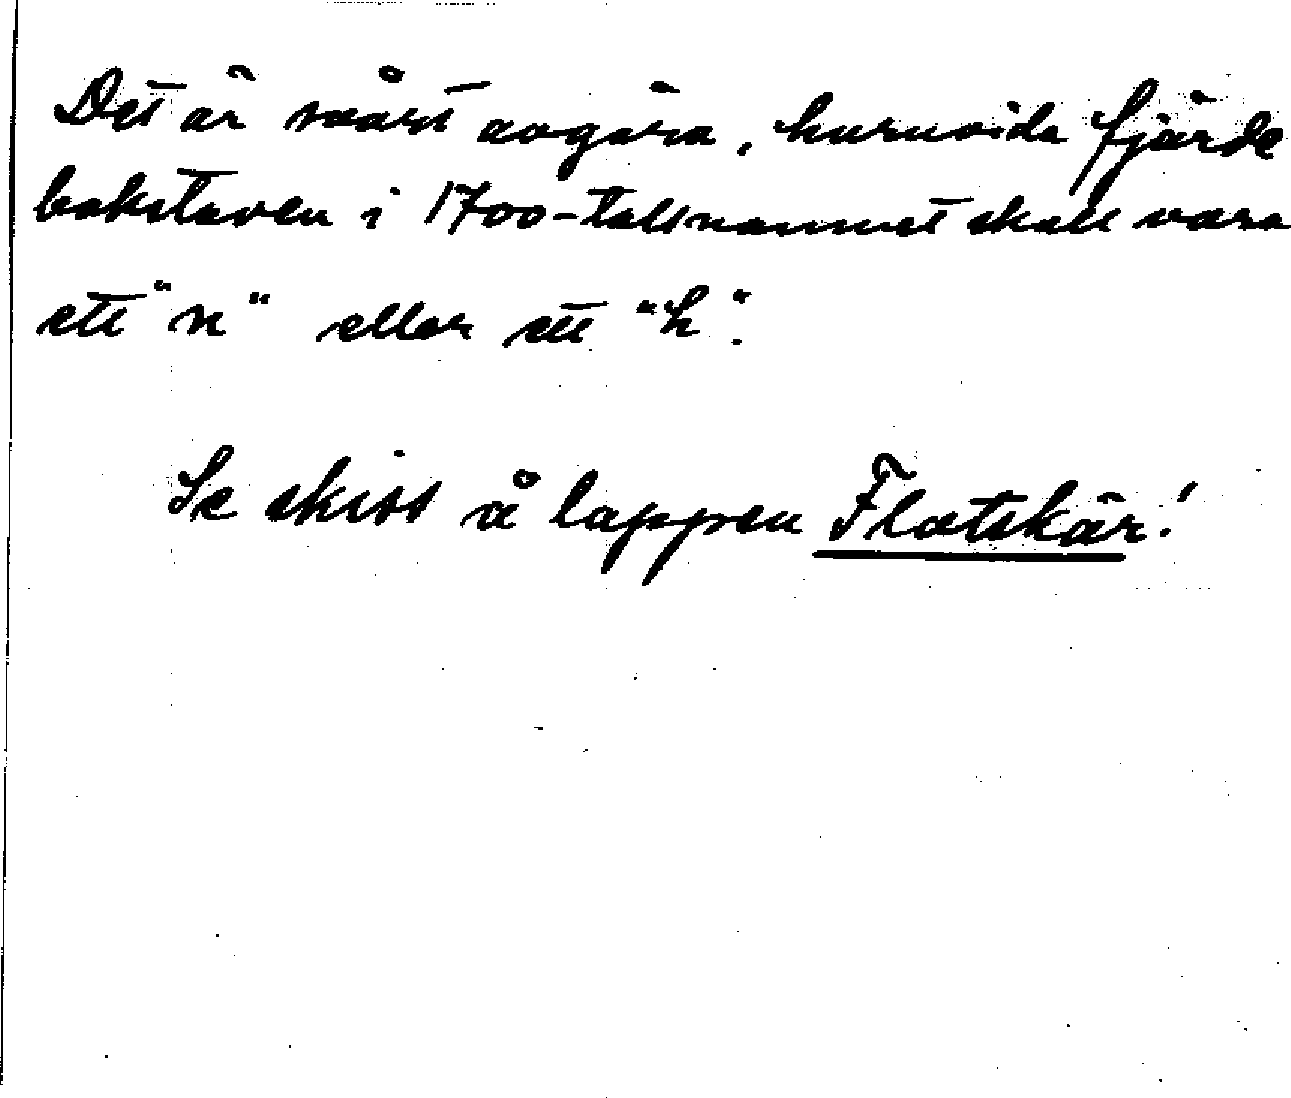 Det är svårt avgöra, huruvida fjärde
bokstaven i 1700-talsnamnet skall vara
ett "n" eller ett "h".
Se skiss å lappen Flatskär!